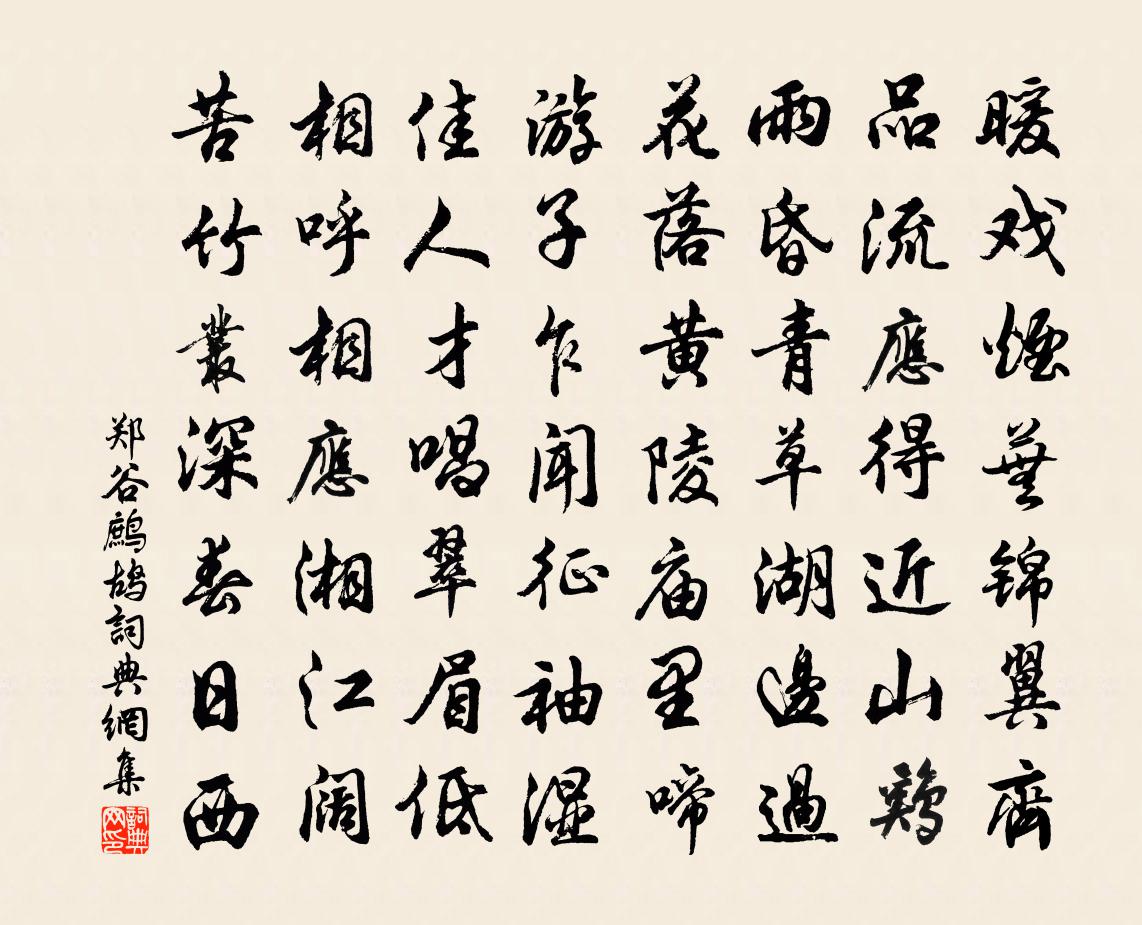 暖戏煙蕪锦翼齊
品流應得近山鷄
雨昏青草湖邊過
花落黄陵庙里啼
游子乍闻征袖湿
佳人才唱翠眉低
相呼相應湘江阔
苦竹叢深春日西
郑谷鹧鸪詞典網集
詞典网印